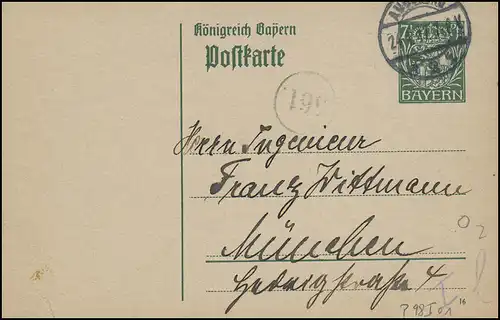 Königreich Bayern
Postkarte
BAYERN
199
Herrn Ingenieur
Franz Wittmann
München
Hedwigstraße 4
P 98 I 01
16